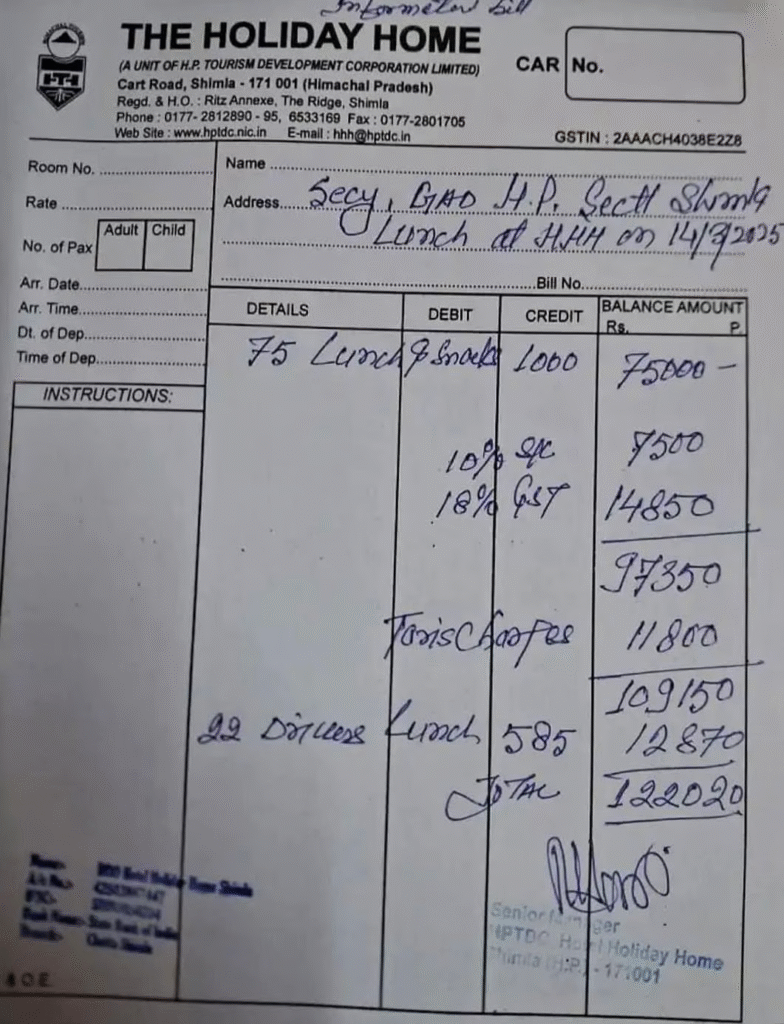 Informeter bill
THE HOLIDAY HOME
(A UNIT OF H.P. TOURISM DEVELOPMENT CORPORATION LIMITED)
Cart Road, Shimla - 171 001 (Himachal Pradesh)
Regd. & H.O. : Ritz Annexe, The Ridge, Shimla
Phone : 0177- 2812890 - 95, 6533169 Fax : 0177-2801705
Web Site : www.hptdc.nic.in E-mail : hhh@hptdc.in
CAR No.
GSTIN : 2AAACH4038E2Z8
Room No.
Rate
Adult Child
No. of Pax
Arr. Date
Arr. Time
Dt. of Dep.
Time of Dep.
INSTRUCTIONS:
Name
Address Secy, GAD H.P. Sectt Shimla
Lunch at HHH on 14/3/2025
Bill No.
DETAILS DEBIT CREDIT BALANCE AMOUNT
Rs. P.
75 Lunch & Snacks 1000 75000 -
10% S/C 7500
18% GST 14850
97350
Taxis Charges 11800
109150
22 Drivers Lunch 585 12870
TOTAL 122020
Senior Manager
HPTDC Hotel Holiday Home
Shimla (H.P.) - 171001
& O.E.